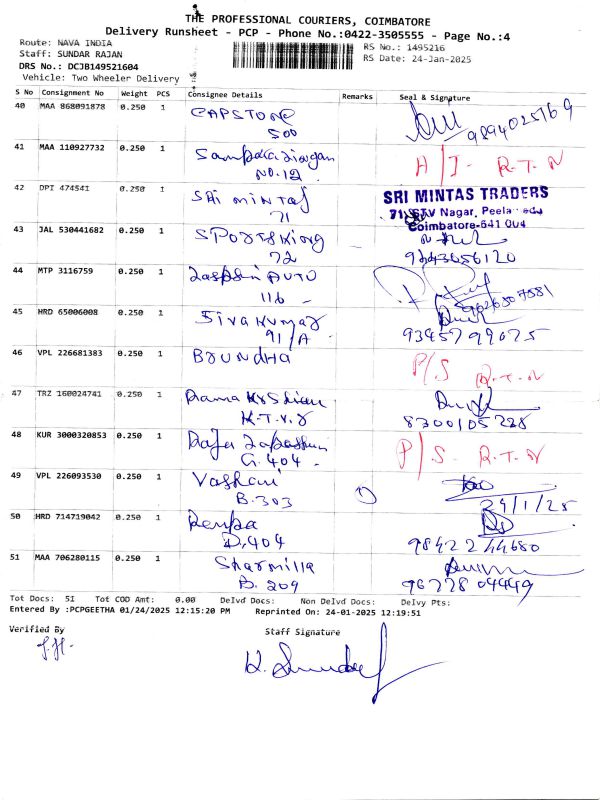 THE PROFESSIONAL COURIERS, COIMBATORE
Delivery Runsheet - PCP - Phone No.:0422-3505555 - Page No.:4
Route: NAVA INDIA
RS No.: 1495216
Staff: SUNDAR RAJAN
RS Date: 24-Jan-2025
DRS No.: DCJB149521604
Vehicle: Two Wheeler Delivery
S No Consignment No Weight PCS Consignee Details Remarks Seal & Signature
40 MAA 868091878 0.250 1 CAPSTONE
500
9894025769
41 MAA 110927732 0.250 1
NO.12
A/I - R.T.N
42 DPI 474541 0.250 1 SRI MINTAS
71
SRI MINTAS TRADERS
71, STV Nagar,
Coimbatore-641 004
43 JAL 530441682 0.250 1 SportsKiong
72
9243656120
44 MTP 3116759 0.250 1 AUTO
116
45 HRD 65006008 0.250 1 SivaKumar
91/A
9345799075
46 VPL 226681383 0.250 1 BRUNDHA
P/S R.T.N
47 TRZ 160024741 0.250 1
K.T.V.R
8300105228
48 KUR 3000320853 0.250 1 Raja
G.404.
P/S. R.T.N
49 VPL 226093530 0.250 1 Vashani
B.303
24/1/25
50 HRD 714719042 0.250 1 Renpa
D.404
9842244680
51 MAA 706280115 0.250 1 Sharmilla
B. 209
9677804449
Tot Docs: 51 Tot COD Amt: 0.00 Delvd Docs: Non Delvd Docs: Delvy Pts:
Entered By :PCPGEETHA 01/24/2025 12:15:20 PM Reprinted On: 24-01-2025 12:19:51
Verified By
Staff Signature